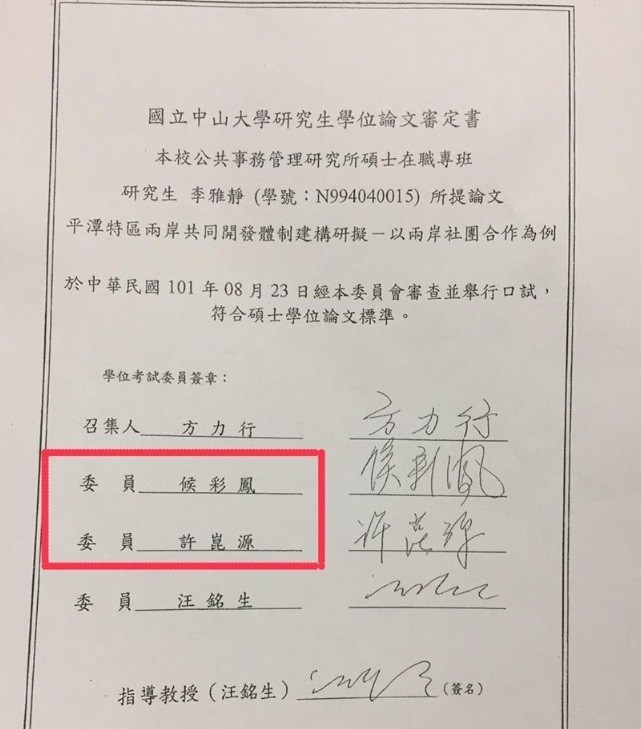 國立中山大學研究生學位論文審定書
本校公共事務管理研究所碩士在職專班
研究生 李雅靜 (學號：N994040015) 所提論文
平潭特區兩岸共同開發體制建構研擬－以兩岸社團合作為例
於中華民國 101 年 08 月 23 日經本委員會審查並舉行口試，
符合碩士學位論文標準。
學位考試委員簽章：
召集人 方 力 行 方力行
委 員 候 彩 鳳 侯彩鳳
委 員 許 崑 源 許崑源
委 員 汪 銘 生
指導教授（汪銘生） （簽名）